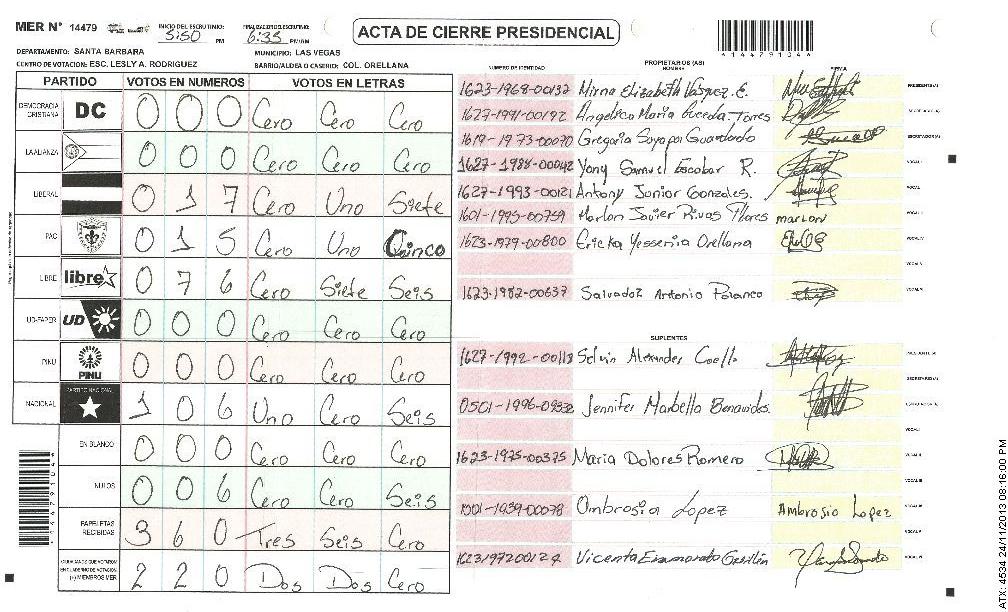 MER N° 14479
INICIO DEL ESCRUTINIO: 5:50 PM
FINALIZACIÓN DEL ESCRUTINIO: 6:35 PM/AM
ACTA DE CIERRE PRESIDENCIAL
144791044
DEPARTAMENTO: SANTA BARBARA
MUNICIPIO: LAS VEGAS
CENTRO DE VOTACION: ESC. LESLY A. RODRIGUEZ
BARRIO/ALDEA O CASERIO: COL. ORELLANA
PARTIDO VOTOS EN NUMEROS VOTOS EN LETRAS
DEMOCRACIA CRISTIANA DC 0 0 0 Cero Cero Cero
LA ALIANZA 0 0 0 Cero Cero Cero
LIBERAL 0 1 7 Cero Uno Siete
PAC 0 1 5 Cero Uno Cinco
LIBRE libre 0 7 6 Cero Siete Seis
UD-FAPER UD 0 0 0 Cero Cero Cero
PINU PINU 0 0 0 Cero Cero Cero
NACIONAL PARTIDO NACIONAL 1 0 6 Uno Cero Seis
EN BLANCO 0 0 0 Cero Cero Cero
NULOS 0 0 6 Cero Cero Seis
PAPELETAS RECIBIDAS 3 6 0 Tres Seis Cero
CIUDADANOS QUE VOTARON EN CUADERNO DE VOTACION (+) MIEMBROS MER 2 2 0 Dos Dos Cero
PROPIETARIOS (AS)
NUMERO DE IDENTIDAD NOMBRE FIRMA
1623-1968-00132 Mirna Elizabeth Vasquez E. PRESIDENTE(A)
1627-1991-00192 Angelica Maria Torres SECRETARIO(A)
1619-1973-00070 Gregoria Sayapa Guardado SECRETARIO(A)
1627-1988-00042 Yony Samuel Escobar R. VOCAL I
1627-1993-00121 Antony Junior Gonzales. VOCAL
1601-1995-00759 Marlon Javier Rivas Flores marlon
1623-1979-00800 Ericka Yessenia Orellana VOCAL IV
VOCAL V
1623-1982-00637 Salvador Antonio Polanco VOCAL VI
SUPLENTES
1627-1992-00113 Selvin Alexander Coello PRESIDENTE (A)
SECRETARIO(A)
0501-1996-09532 Jennifer Marbella Benavides.
VOCAL I
1623-1975-00375 Maria Dolores Romero VOCAL II
VOCAL III
1001-1939-00078 Ombrosia Lopez Ambrosio Lopez
VOCAL V
1623197200124 Vicenta Enamorado VOCAL VI
ATX: 4534 24/11/2013 08:16:00 PM